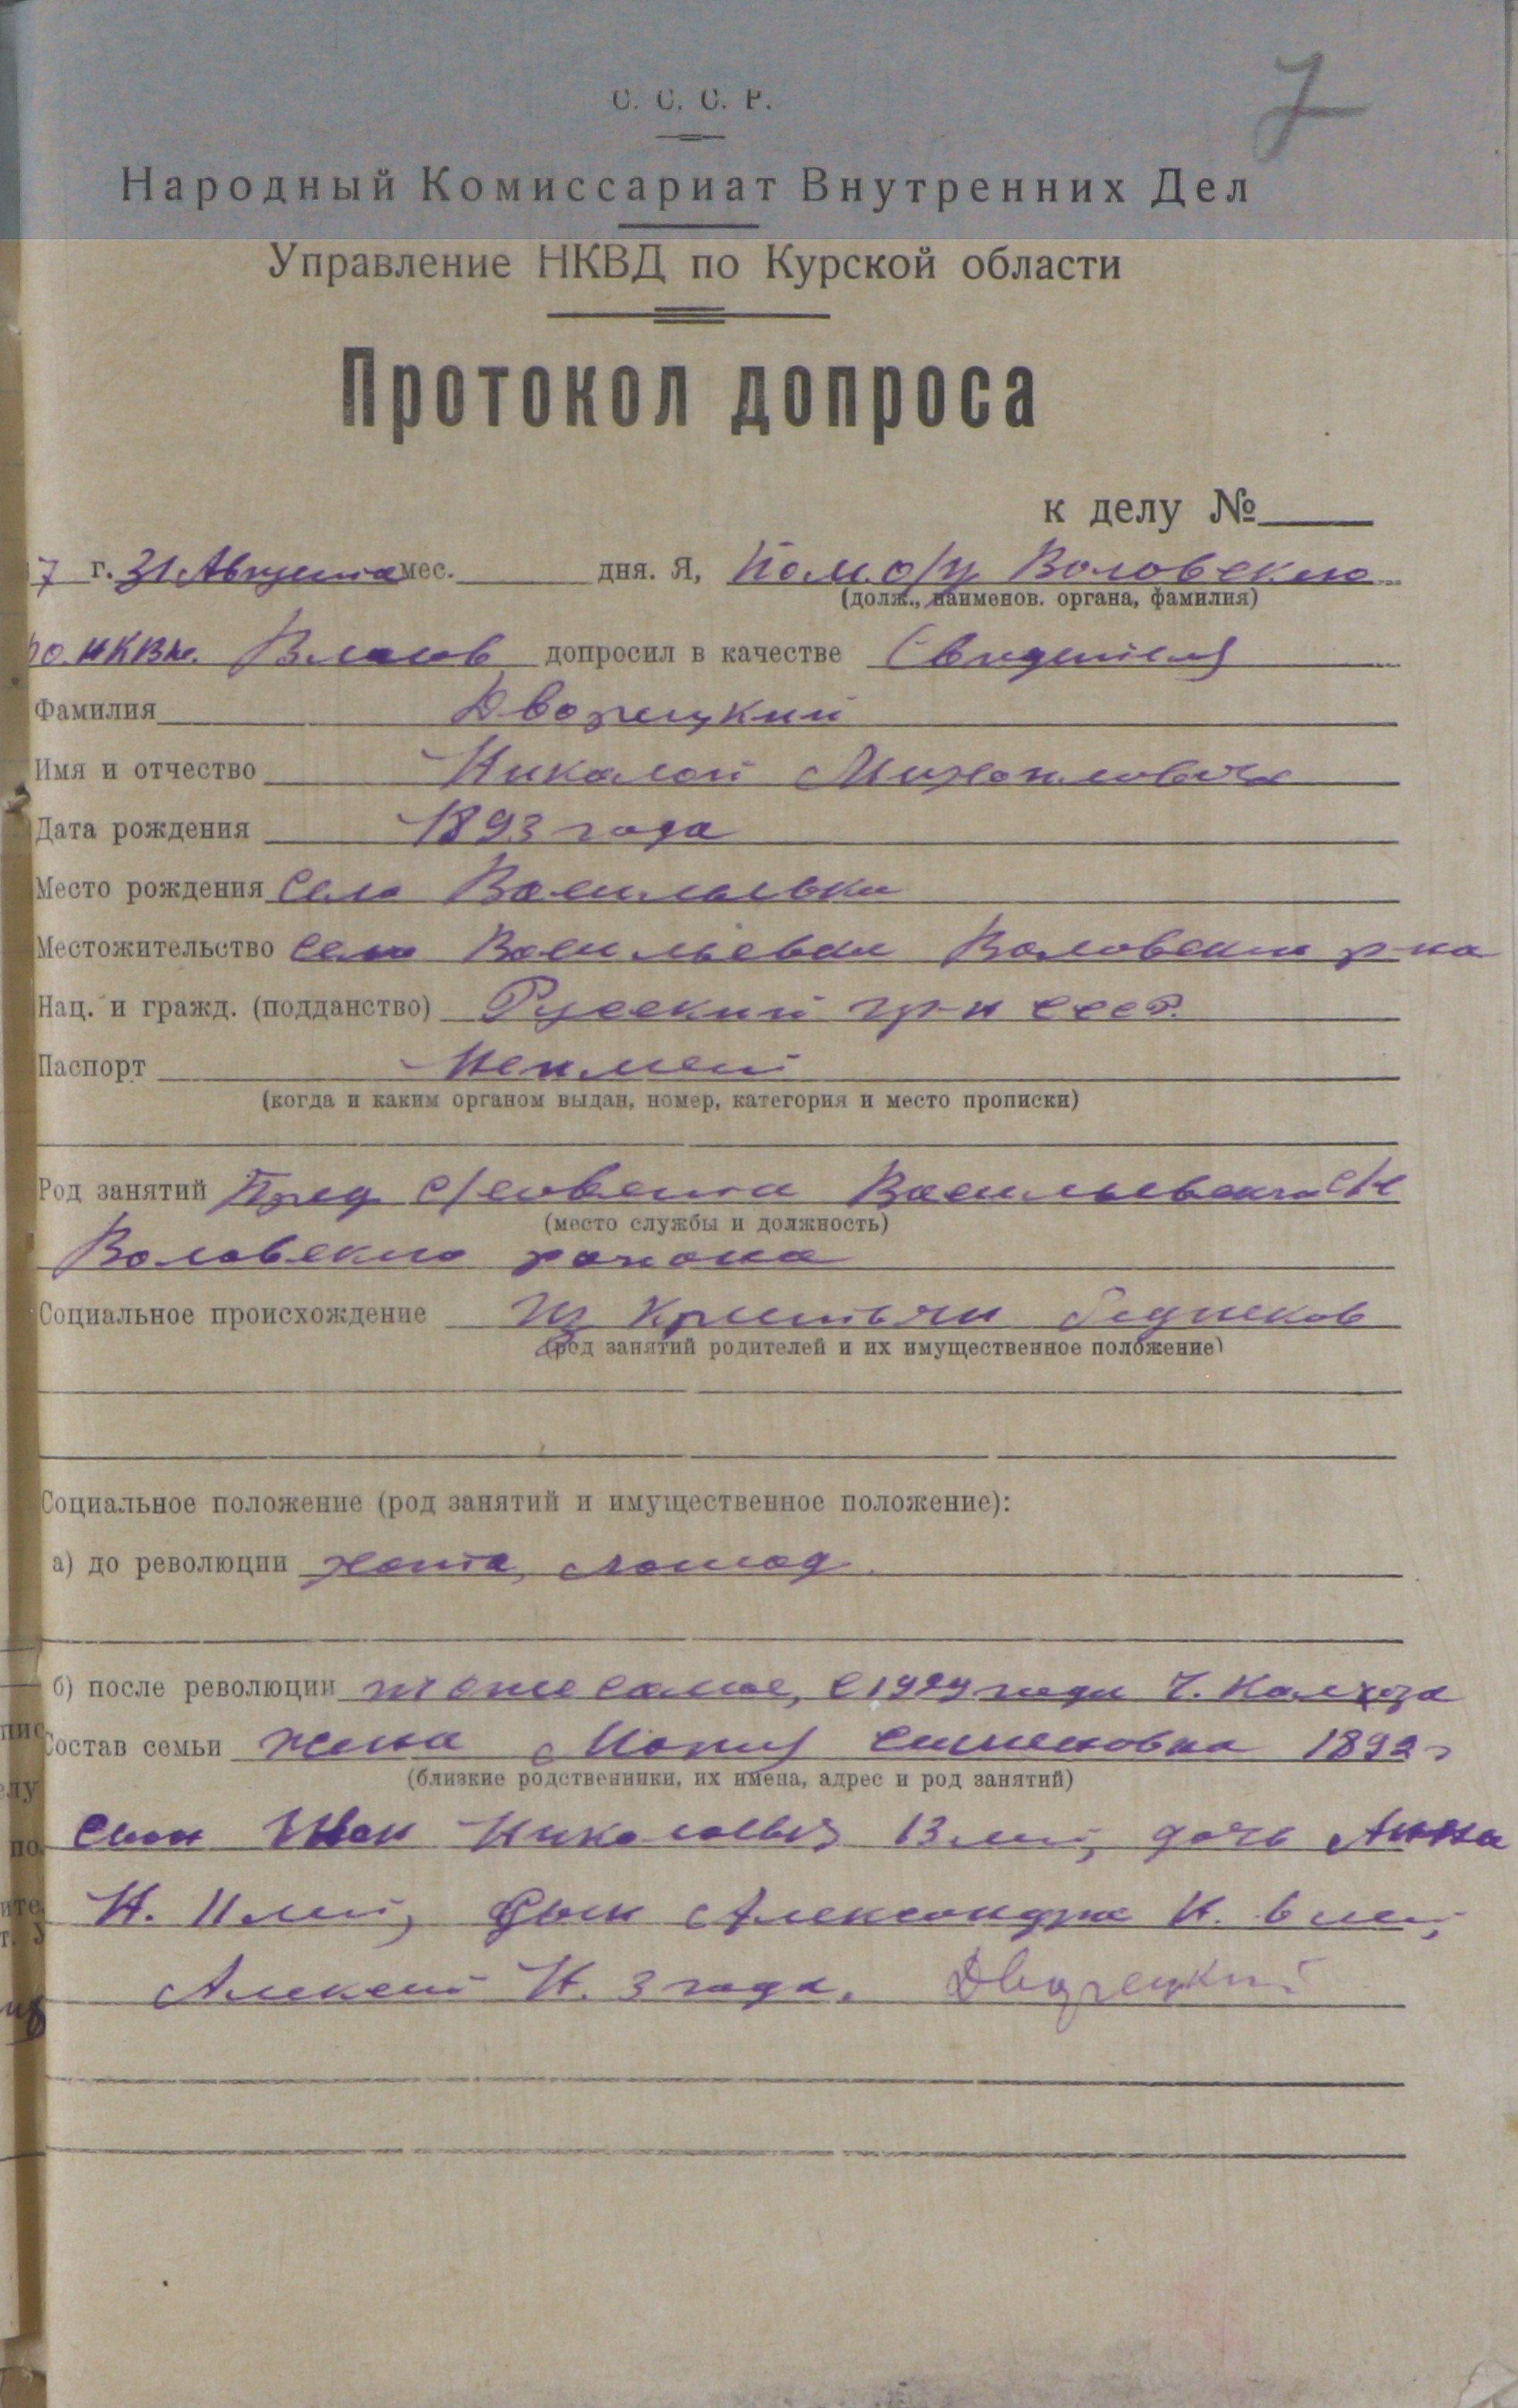 7
С. С. С. Р.
Народный Комиссариат Внутренних Дел
Управление НКВД по Курской области
Протокол допроса
к делу №
7 г. 31 Августа мес. дня. Я, Пом. о/у Воловского
(долж., наименов. органа, фамилия)
РО НКВД. Власов допросил в качестве Свидетеля
Фамилия Дворецкий
Имя и отчество Николай Михайлович
Дата рождения 1893 года
Место рождения Село Васильевка
Местожительство Село Васильевка Воловского р-на
Нац. и гражд. (подданство) Русский гр-н СССР.
Паспорт Неимеет
(когда и каким органом выдан, номер, категория и место прописки)
Род занятий Пред с/совета Васильевского с/с
(место службы и должность)
Воловского района
Социальное происхождение Из Крестьян
(род занятий родителей и их имущественное положение)
Социальное положение (род занятий и имущественное положение):
а) до революции хата, лошад.
б) после революции тоже самое, с 1929 года Ч. Колхоза
Состав семьи жена Мария Семеновна 1892 г
(близкие родственники, их имена, адрес и род занятий)
Сын Иван Николаевич 13 лет, дочь Анна
Н. 11 лет, Сын Александр Н. 6 лет,
Алексей Н. 3 года. Дворецкий